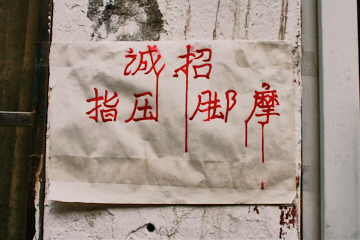 诚招
指压脚摩